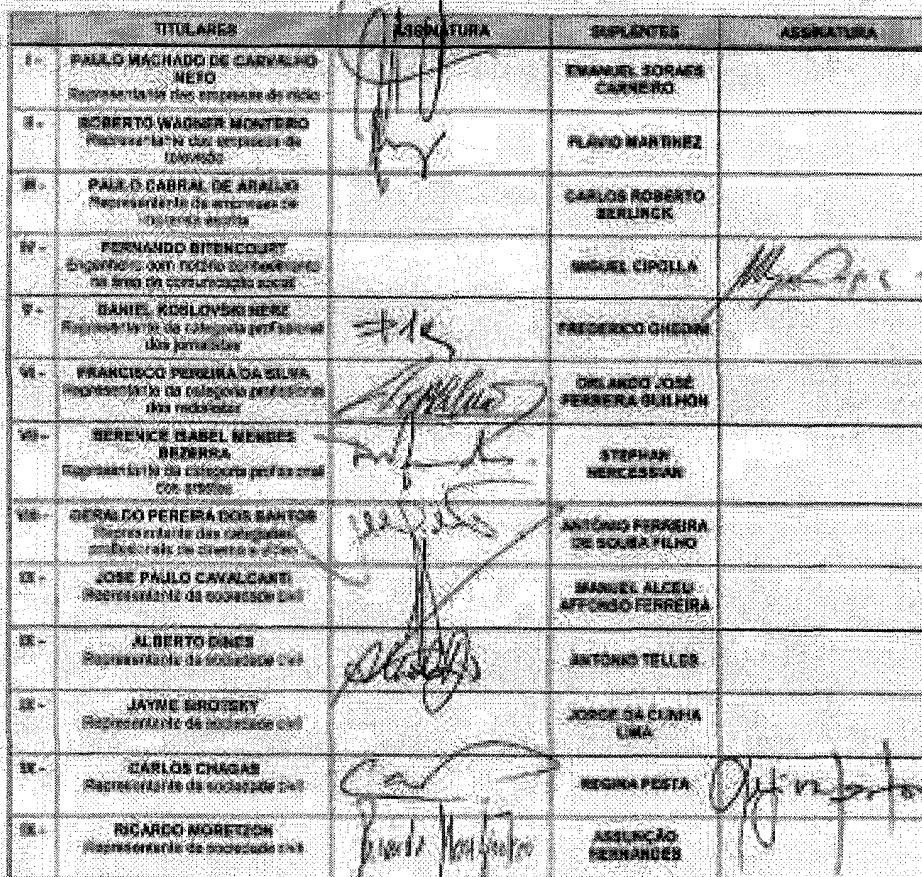 TITULARES ASSINATURA SUPLENTES ASSINATURA
I - PAULO MACHADO DE CARVALHO
NETO
Representante das empresas de rádio
EMANUEL SORAES
CARNEIRO
II - ROBERTO WAGNER MONTEIRO
Representante das empresas de
televisão
FLÁVIO MARTINEZ
III - PAULO CABRAL DE ARAÚJO
Representante de empresas de
imprensa escrita
CARLOS ROBERTO
BERLINCK
IV - FERNANDO BITENCOURT
Engenheiro com notório conhecimento
na área de comunicação social
MIGUEL CIPOLLA
V - DANIEL KOSLOVSKI HERZ
Representante da categoria profissional
dos jornalistas
FREDERICO GHEDINI
VI - FRANCISCO PEREIRA DA SILVA
Representante da categoria profissional
dos radialistas
ORLANDO JOSÉ
FERREIRA GUILHON
VII - BERENICE ISABEL MENDES
BEZERRA
Representante da categoria profissional
dos artistas
STEPHAN
NERCESSIAN
VIII - GERALDO PEREIRA DOS SANTOS
Representante das categorias
profissionais de cinema e vídeo
ANTÔNIO FERREIRA
DE SOUSA FILHO
IX - JOSÉ PAULO CAVALCANTI
Representante da sociedade civil
MANUEL ALCEU
AFFONSO FERREIRA
IX - ALBERTO DINES
Representante da sociedade civil
ANTÔNIO TELLES
IX - JAYME SIROTSKY
Representante da sociedade civil
JORGE DA CUNHA
LIMA
IX - CARLOS CHAGAS
Representante da sociedade civil
REGINA FESTA
IX - RICARDO MORETZON
Representante da sociedade civil
ASSUNÇÃO
HERNANDES